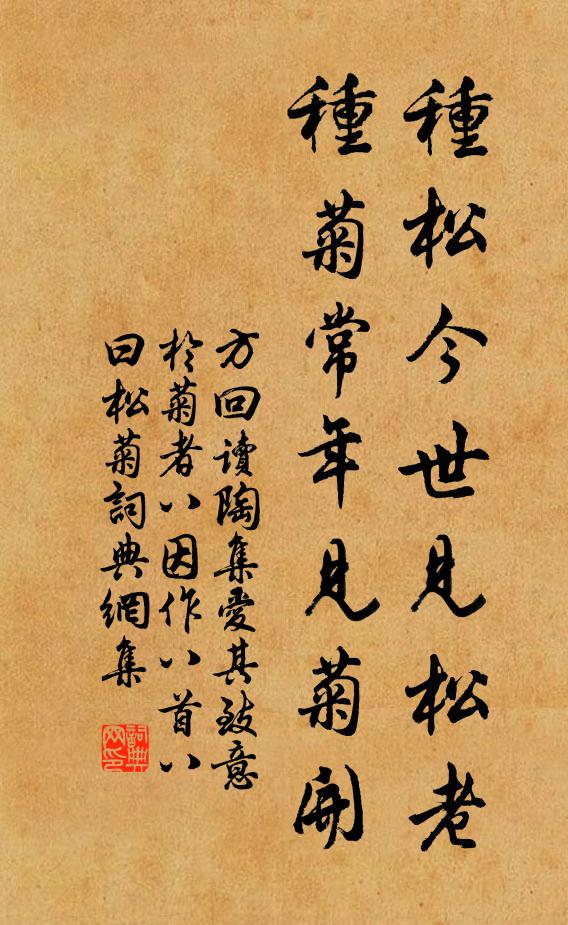 種松今世見松老
種菊常年見菊開
方回讀陶集愛其致意
於菊者八因作八首八
曰松菊詞典網集
詞典
网印